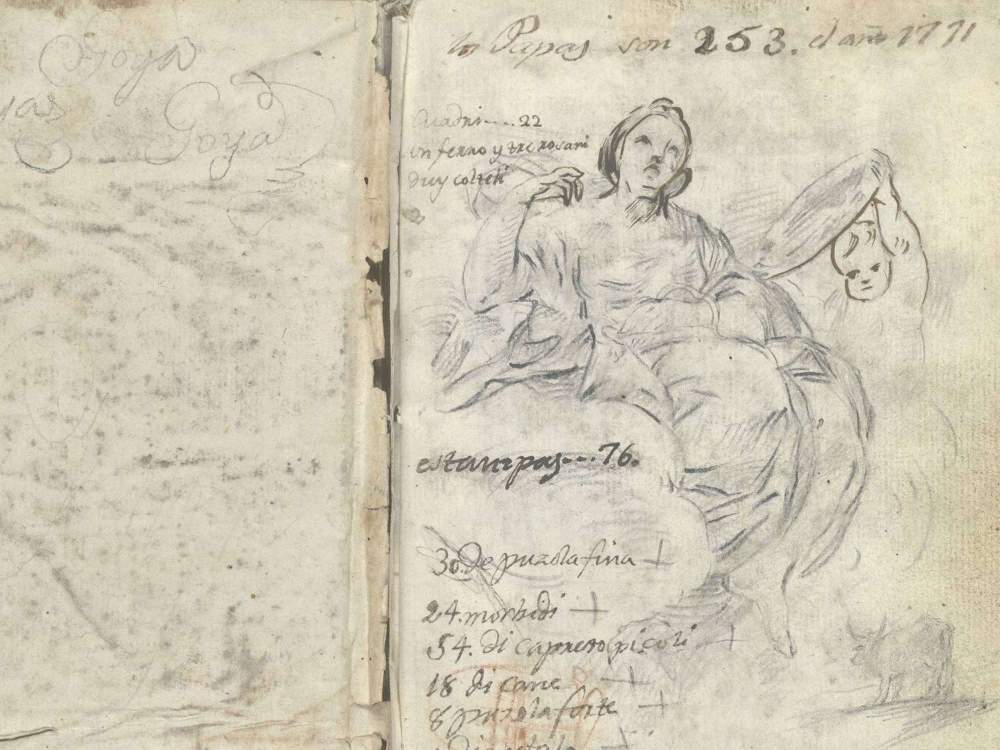 Goya
Goya
los Papas son 253. el año 1771
Cuadri.....22
un ferro y tre rosari
duy colteli
estampas....76.
30. de puzola fina +
24. morbidi +
54. di capreto picoli +
18 di cane +
8 puzola forte +